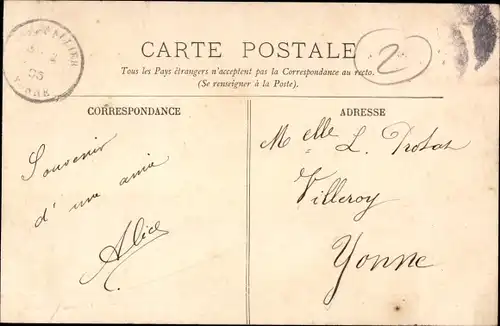 CARTE POSTALE
2
Tous les Pays étrangers n'acceptent pas la Correspondance au recto.
(Se renseigner à la Poste).
CORRESPONDANCE
ADRESSE
Souvenir
d'une amie
Alice
Melle L. Protat
Villeroy
Yonne